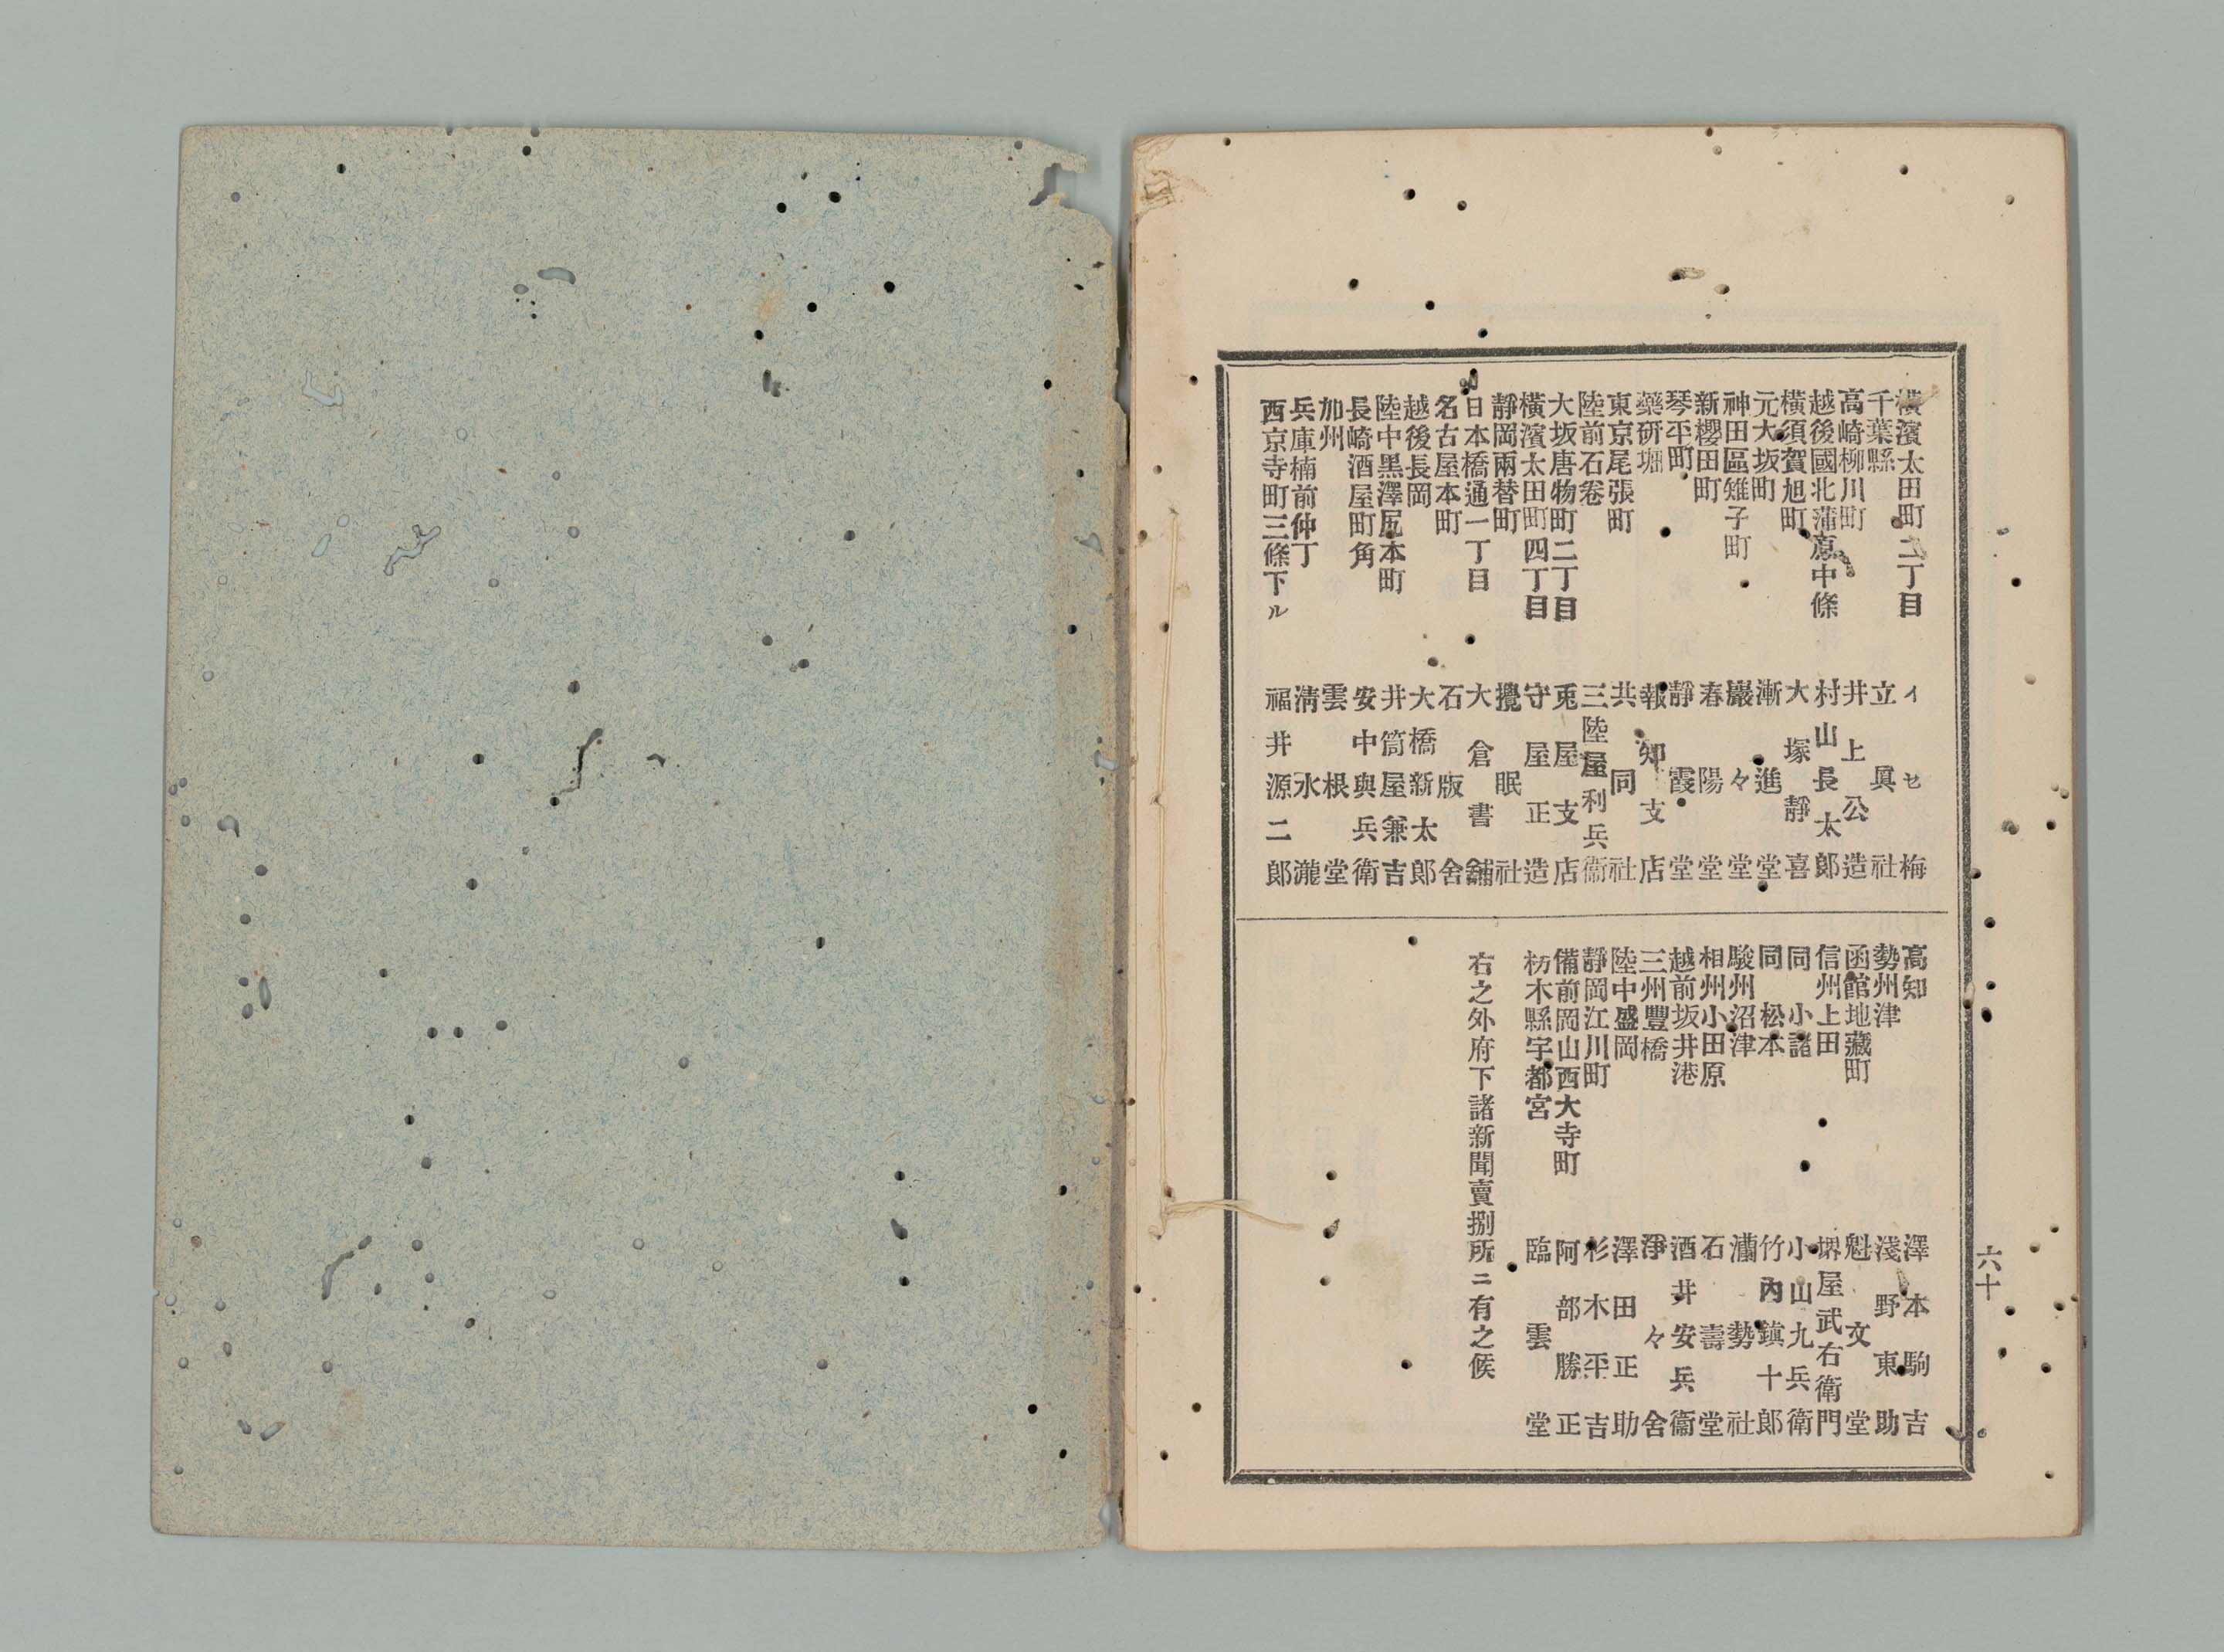 橫濱太田町二丁目　イセ梅
千葉縣　立眞社
高崎柳川町　井上公造
越後國北蒲原中條　村山長太郎
橫須賀旭町　大塚靜喜
元大坂町　漸進堂
神田區雉子町　巖々堂
新櫻田町　春陽堂
琴平町　靜霞堂
藥研堀　報知支店
東京尾張町　共同社
陸前石卷　三陸屋利兵衞
大坂唐物町二丁目　兎屋支店
橫濱太田町四丁目　守屋正造
靜岡兩替町　攪眠社
日本橋通一丁目　大倉書舖
名古屋本町　石版舍
越後長岡　大橋新太郎
陸中黑澤尻本町　井筒屋兼吉
長崎酒屋町角　安中與兵衛
加州　雲根堂
兵庫楠前仲丁　淸水瀧
西京寺町三條下ル　福井源二郎
高知　澤本駒吉
勢州津　淺野東助
函館地藏町　魁文堂
信州上田　堺屋武右衛門
同　小諸　小山九兵衛
同　松本　竹內鎭十郎
駿州沼津　瀟勢社
相州小田原　石壽堂
越前坂井港　酒井安兵衞
三州豐橋　淨々舍
陸中盛岡　澤田正助
靜岡江川町　杉木平吉
備前岡山西大寺町　阿部勝正
枥木縣宇都宮　臨雲堂
右之外府下諸新聞賣捌所ニ有之候
六十